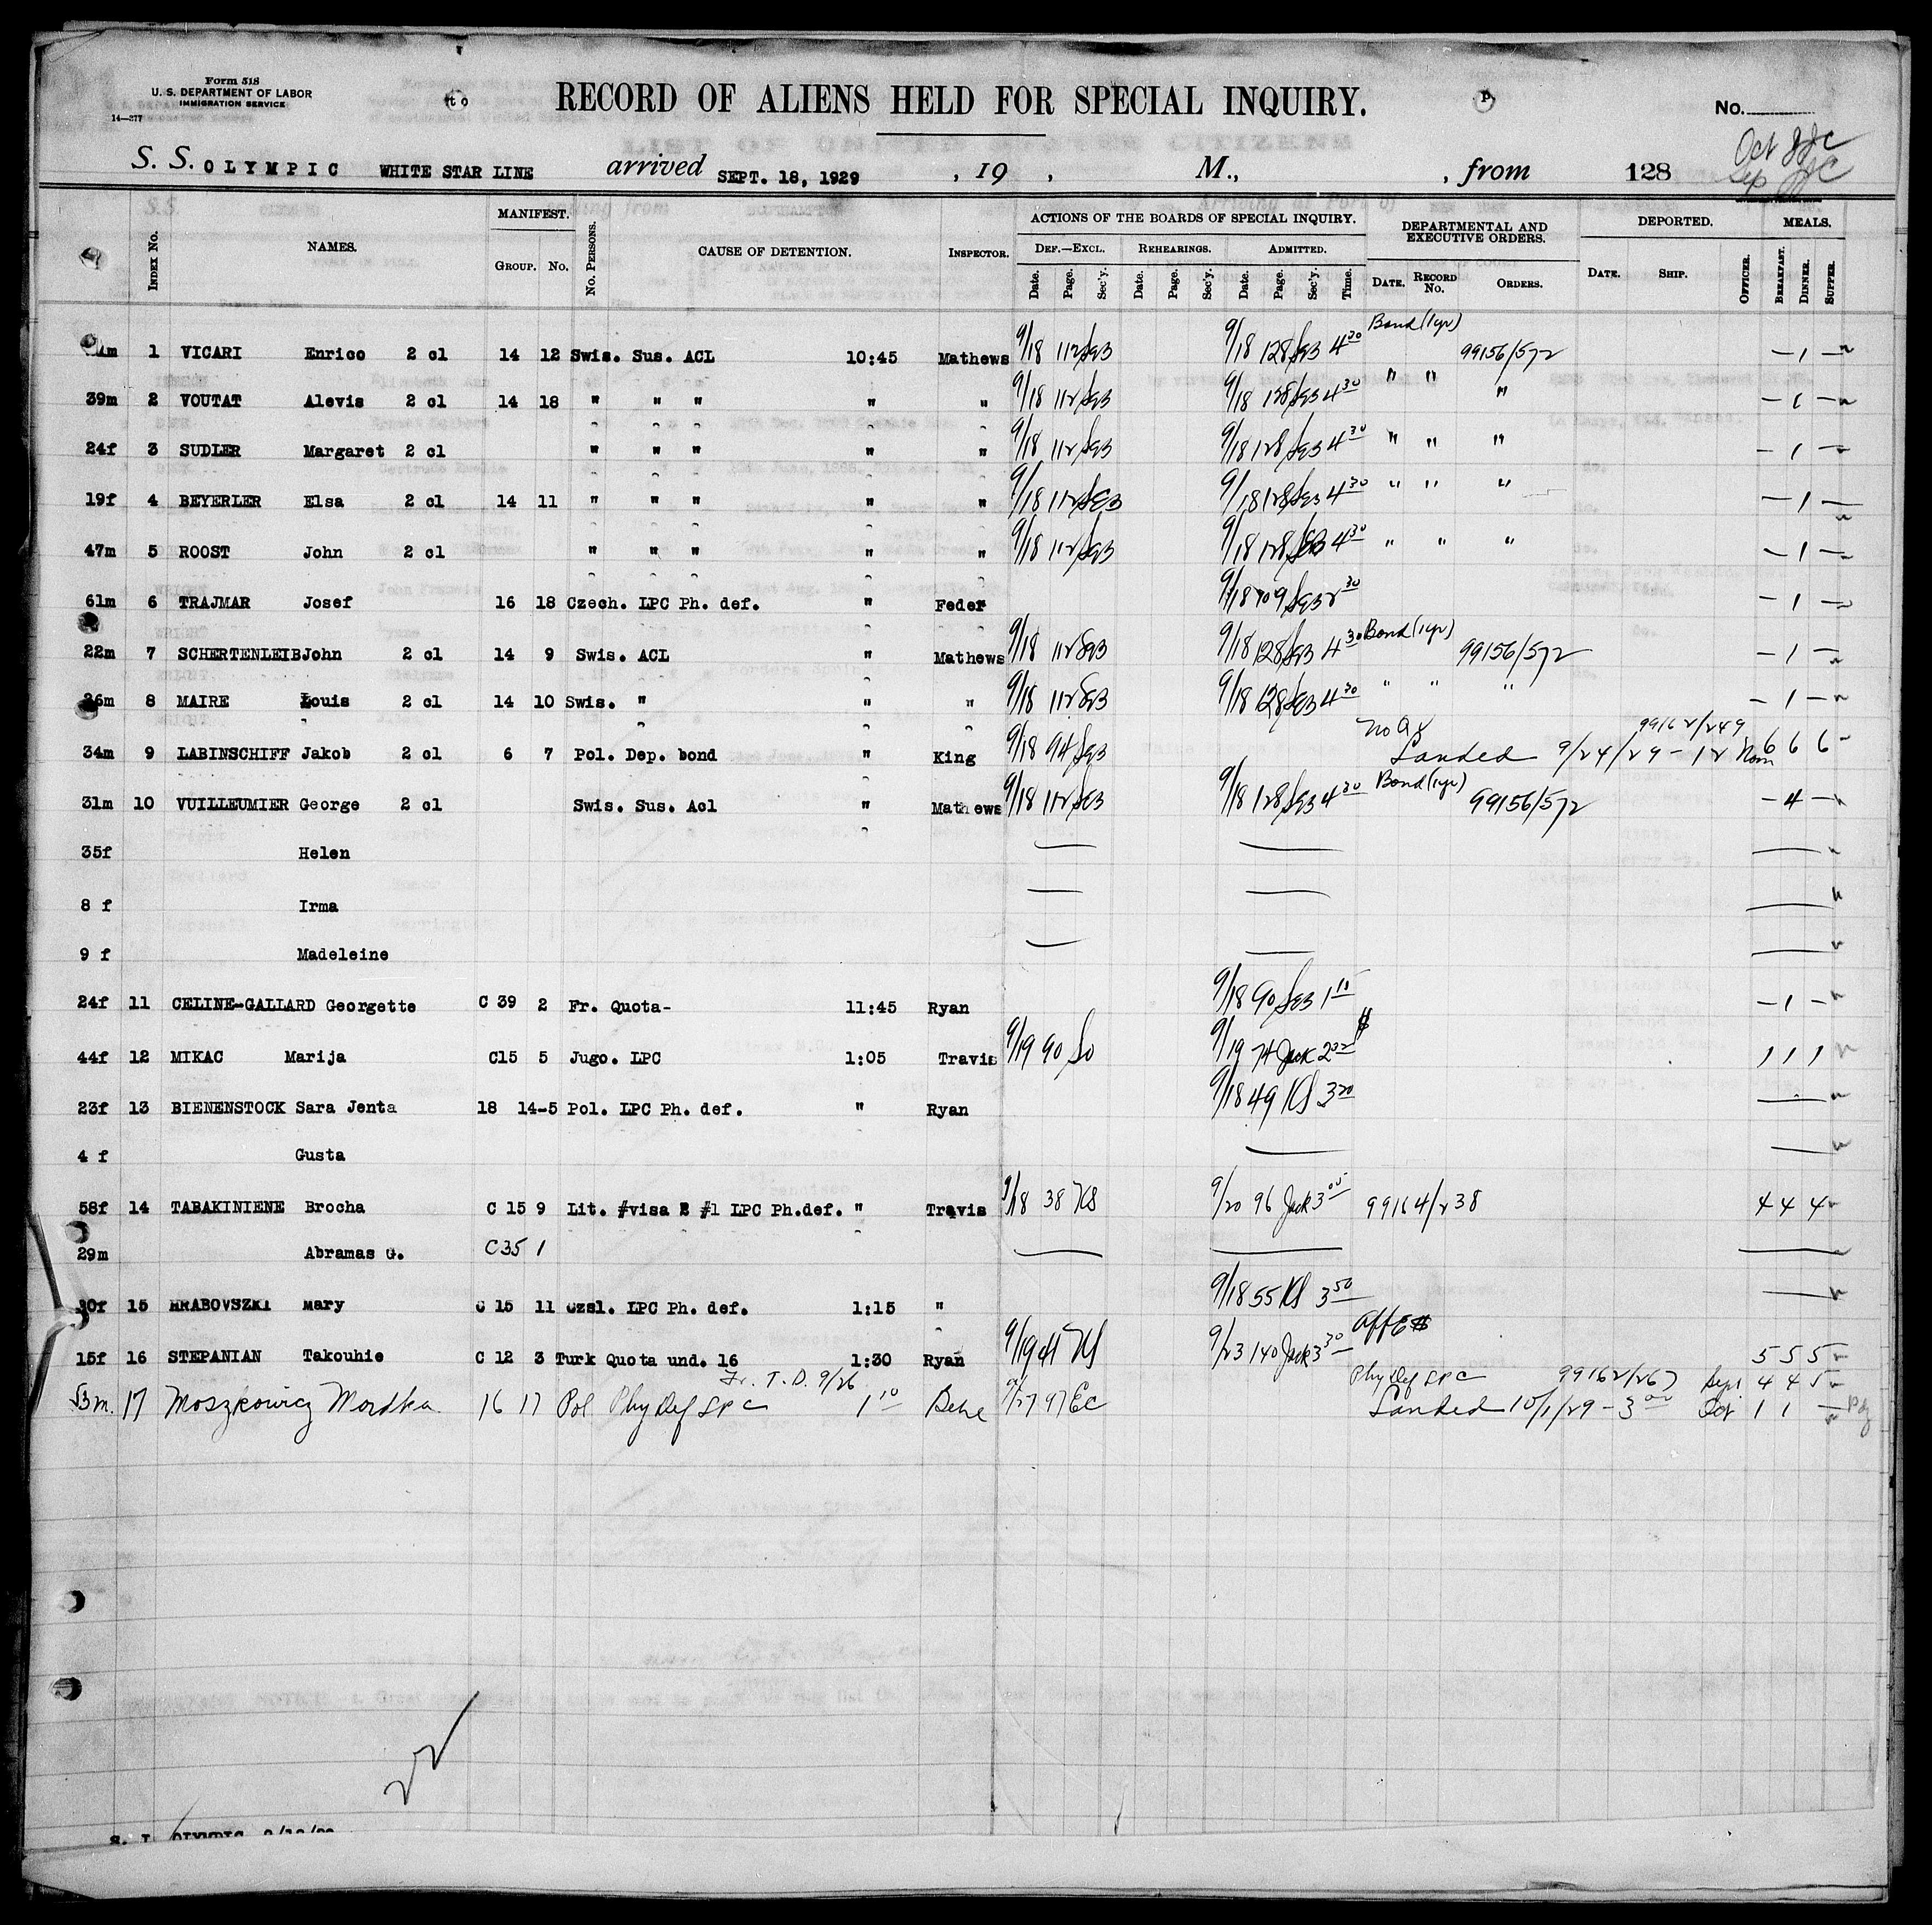 Form 518
U. S. DEPARTMENT OF LABOR
IMMIGRATION SERVICE
14—277
to
RECORD OF ALIENS HELD FOR SPECIAL INQUIRY.
P
No.
S. S. OLYMPIC WHITE STAR LINE arrived SEPT. 18, 1929 , 19 , M., , from 128
Oct JJC
Sep JJC
INDEX NO. NAMES. MANIFEST. GROUP. NO. NO. PERSONS. CAUSE OF DETENTION. INSPECTOR. ACTIONS OF THE BOARDS OF SPECIAL INQUIRY. DEPARTMENTAL AND EXECUTIVE ORDERS. DEPORTED. MEALS.
DEF.—EXCL. REHEARINGS. ADMITTED.
Date. Page. Sec'y. Date. Page. Sec'y. Date. Page. Sec'y. Time. DATE. RECORD NO. ORDERS. DATE. SHIP. OFFICER. BREAKFAST. DINNER. SUPPER.
Bond (1yr)
1 VICARI Enrico 2 cl 14 12 Swis. Sus. ACL 10:45 Mathews 9/18 112 SEB 9/18 128 SEB 4 30 99156/572 — 1 —
39m 2 VOUTAT Alevis 2 cl 14 18 " " " " " 9/18 112 SEB 9/18 128 SEB 4 30 " " " — 1 —
24f 3 SUDLER Margaret 2 cl " " " " " 9/18 112 SEB 9/18 128 SEB 4 30 " " " — 1 —
19f 4 BEYERLER Elsa 2 cl 14 11 " " " " " 9/18 112 SEB 9/18 128 SEB 4 30 " " " — 1 —
47m 5 ROOST John 2 cl " " " " " 9/18 112 SEB 9/18 128 SEB 4 30 " " " — 1 —
61m 6 TRAJMAR Josef 16 18 Czech. LPC Ph. def. " Feder 9/18 709 SEB 2 30 — 1 —
22m 7 SCHERTENLEIB John 2 cl 14 9 Swis. ACL " Mathews 9/18 112 SEB 9/18 128 SEB 4 30 Bond (1yr) 99156/572 — 1 —
26m 8 MAIRE Louis 2 cl 14 10 Swis. " " " 9/18 112 SEB 9/18 128 SEB 4 30 " " " — 1 —
99162/249
34m 9 LABINSCHIFF Jakob 2 cl 6 7 Pol. Dep. bond " King 9/18 94 SEB Landed 9/24/29 - 12 Noon 6 6 6
31m 10 VUILLEUMIER George 2 cl Swis. Sus. Acl " Mathews 9/18 112 SEB 9/18 128 SEB 4 30 Bond (1yr) 99156/572 — 4 —
35f Helen
8 f Irma
9 f Madeleine
24f 11 CELINE-GALLARD Georgette C 39 2 Fr. Quota- 11:45 Ryan 9/18 90 SEB 1 10 — 1 —
44f 12 MIKAC Marija C15 5 Jugo. LPC 1:05 Travis 9/19 90 So 9/19 74 Jack 2 1 1 1
23f 13 BIENENSTOCK Sara Jenta 18 14-5 Pol. LPC Ph. def. " Ryan 9/18 49 KS 3 20
4 f Gusta
58f 14 TABAKINIENE Brocha C 15 9 Lit. #visa 2 #1 LPC Ph.def. " Travis 9/18 38 KS 9/20 96 Jack 3 00 99164/238 4 4 4
29m Abramas G. C35 1
30f 15 HRABOVSZKI Mary C 15 11 Czsl. LPC Ph. def. 1:15 " 9/18 55 KS 3 50
15f 16 STEPANIAN Takouhie C 12 3 Turk Quota und. 16 1:30 Ryan 9/19 41 KS 9/23 140 Jack 3 30 5 5 5
Fr. T. D. 9/26 Phy Def LPC 99162/267 Sept 4 4 5
53m. 17 Moszkowicz Mordka 16 17 Pol Phy Def LPC 1 10 9/27 97 EC Landed 10/1/29 - 3 00 Oct 1 1 —
22
S. I. OLYMPIC 9/18/29